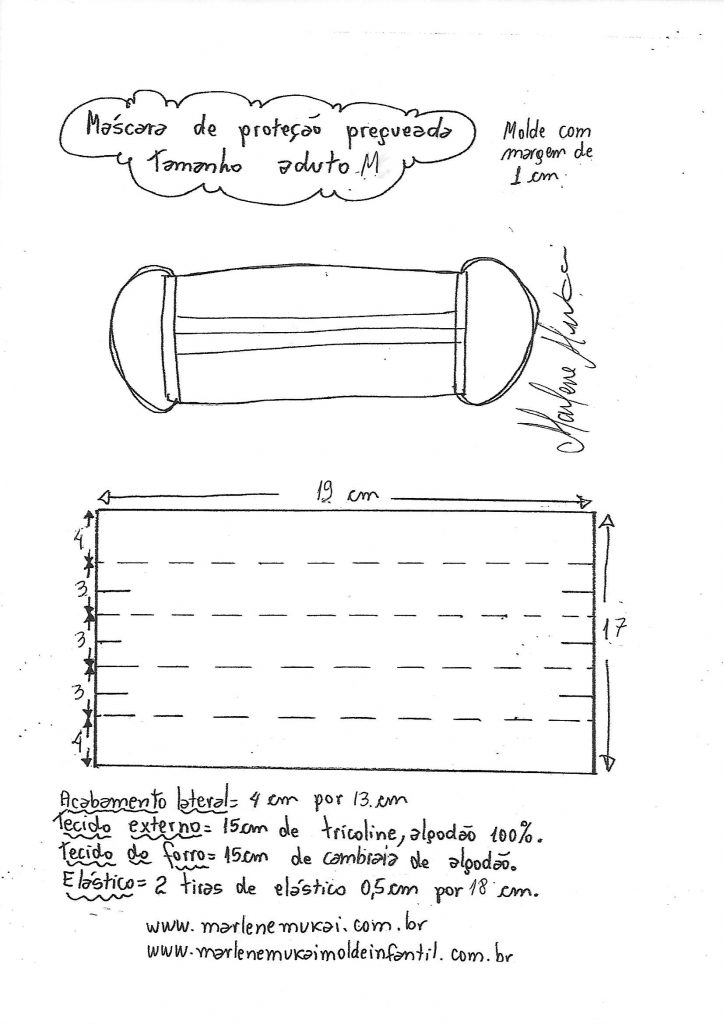 Máscara de proteção pregueada
Tamanho aduto M
Molde com
margem de
1 cm.
Marlene Mukai
19 cm
4
3
3
3
4
17
Acabamento lateral = 4 cm por 13 cm
Tecido externo = 15cm de tricoline, algodão 100%.
Tecido do forro = 15cm de cambraia de algodão.
Elástico = 2 tiras de elástico 0,5 cm por 18 cm.
www.marlenemukai.com.br
www.marlenemukaimoldeinfantil.com.br